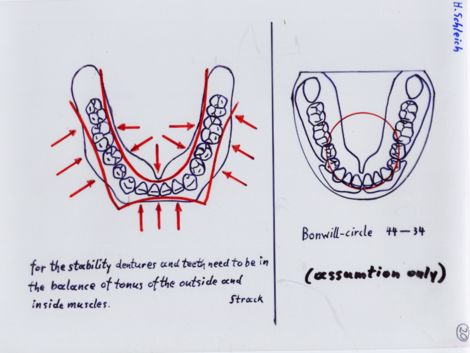 H. Schleich
for the stability dentures and teeth need to be in
the balance of tonus of the outside and
inside muscles. Strack
Bonwill-circle 44 — 34
(assumtion only)
20